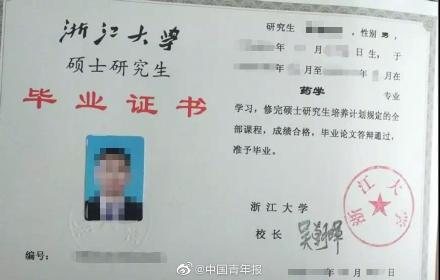 浙江大学
硕士研究生
毕业证书
编号:
研究生 ,性别 男,
年 月 日生,于
年 月至 年 月在
药学 专业
学习,修完硕士研究生培养计划规定的全
部课程,成绩合格,毕业论文答辩通过,
准予毕业。
浙江大学
校长 吴朝晖
浙江大学
@中国青年报